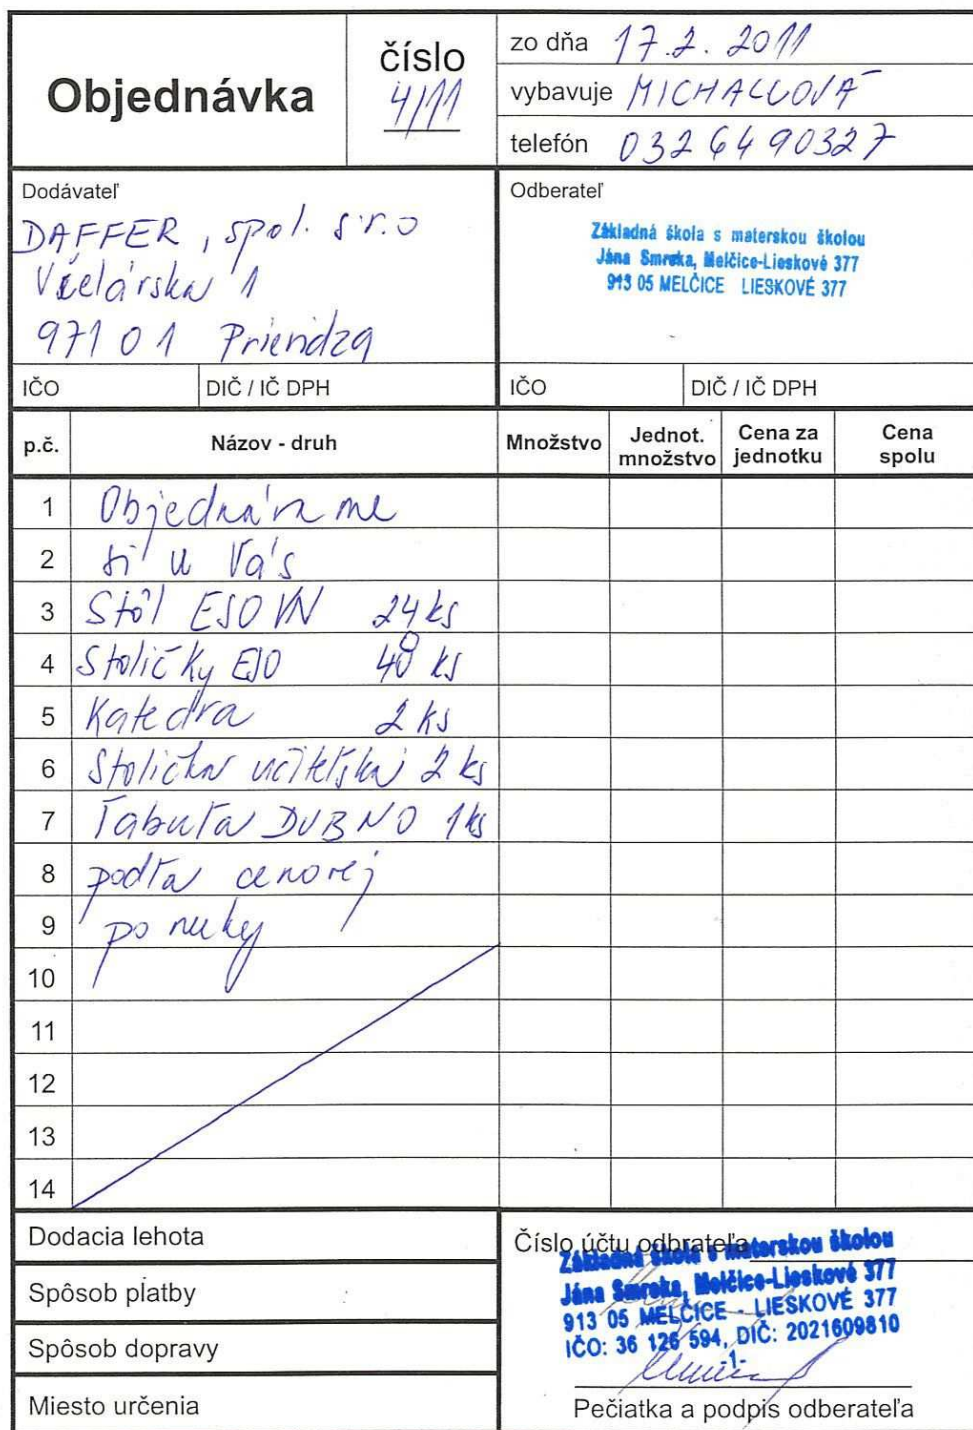 Objednávka
číslo
4/11
zo dňa 17.2. 2011
vybavuje MICHALCOVÁ
telefón 0326490327
Dodávateľ
DAFFER, spol. s r.o
Včelárska 1
971 01 Prievidza
IČO DIČ / IČ DPH
Odberateľ
Základná škola s materskou školou
Jána Smreka, Melčice-Lieskové 377
913 05 MELČICE LIESKOVÉ 377
IČO DIČ / IČ DPH
p.č. Názov - druh Množstvo Jednot. množstvo Cena za jednotku Cena spolu
1 Objednávame
2 si u Vás
3 Stôl ESO VN 24 ks
4 Stoličky ESO 48 ks
5 Katedra 2 ks
6 Stolička učiteľská 2 ks
7 Tabuľa DUBNO 1 ks
8 podľa cenovej
9 ponuky
10
11
12
13
14
Dodacia lehota
Spôsob platby
Spôsob dopravy
Miesto určenia
Číslo účtu odbrateľa
Základná škola s materskou školou
Jána Smreka, Melčice-Lieskové 377
913 05 MELČICE - LIESKOVÉ 377
IČO: 36 126 594, DIČ: 2021609810
-1-
Pečiatka a podpis odberateľa